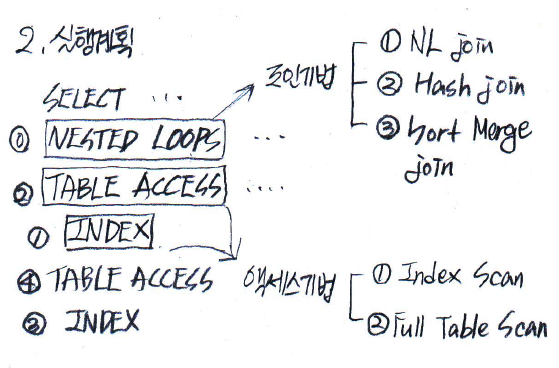 2. 실행계획
SELECT ...
⓪ NESTED LOOPS ...
② TABLE ACCESS ....
① INDEX
④ TABLE ACCESS
③ INDEX
조인기법
① NL join
② Hash join
③ Sort Merge
join
액세스기법
① Index Scan
② Full Table Scan